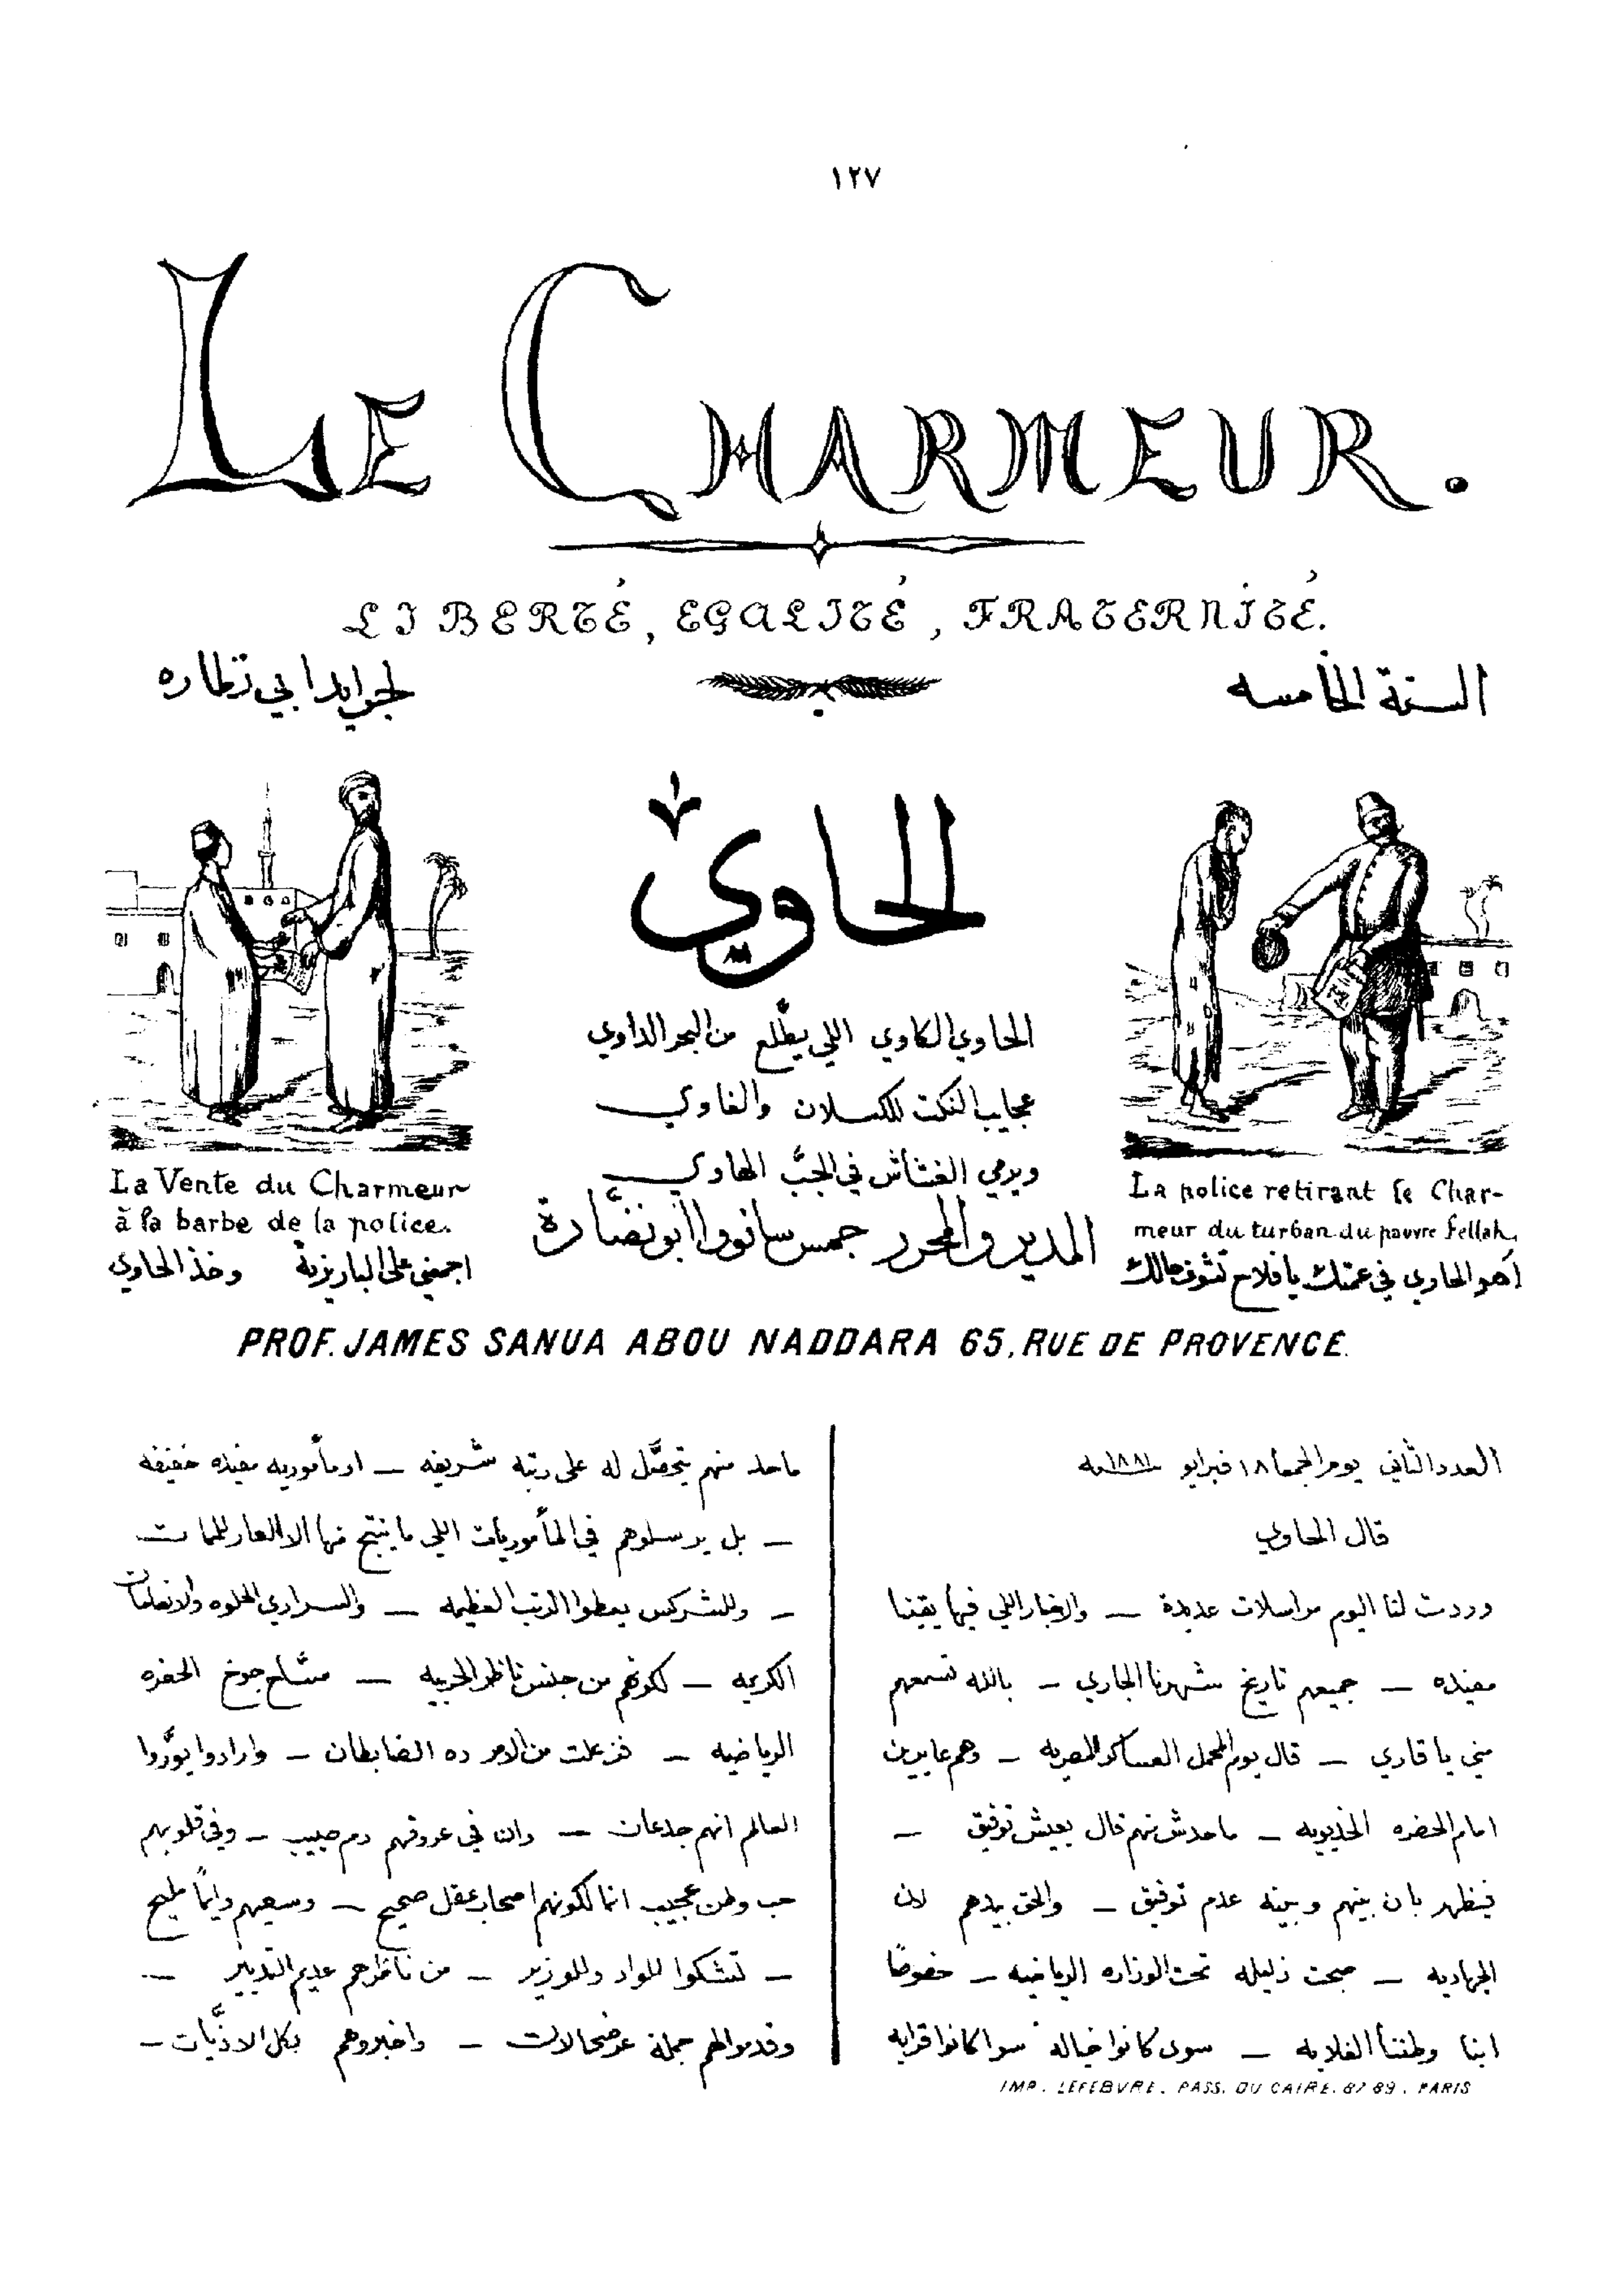 ١٢٧
LE CHARMEUR.
LIBERTÉ, EGALITÉ, FRATERNITÉ.
السنة الخامسه
لجرايد ابي نظاره
الحاوي
الحاوي الكاوي اللي يطلّع من البحر الداوي
عجايب النكت للكسلان والغاوي
ويرمي الغشاش في الجبّ الهاوي
المدير والمحرر جمس سانووا ابو نضّارة
La Vente du Charmeur
à la barbe de la police.
اجمعني على الباريزية وخذ الحاوي
La police retirant le Char-
meur du turban du pauvre fellah.
اهو الحاوي في عمتك يا فلاح تشوف حالك
PROF. JAMES SANUA ABOU NADDARA 65, RUE DE PROVENCE.
العدد الثاني يوم الجمعا ١٨ فبراير ١٨٨١ سنه
قال الحاوي
وردت لنا اليوم مراسلات عديدة — والاخبار اللي فيها يقينا
مفيده — جميعهم تاريخ شهرنا الجاري — بالله تسمعهم
مني يا قاري — قال يوم المحمل العساكر المصريه — وهم عابرين
امام الحضره الخديويه — ماحدش منهم قال يعيش توفيق —
فيظهر بان بينهم وبينه عدم توفيق — والحق بيدهم لان
الجهاديه — صبحت ذليله تحت الوزاره الرياضيه — خصوصًا
ابنا وطننا الغلابه — سوى كانوا خياله سوا كانوا قرابه
IMP. LEFEBVRE. PASS. DU CAIRE. 87-89. PARIS
ماحد منهم يتحصّل له على رتبه شريفه — او مأموريه مفيده خفيفه
— بل يرسلوهم في المأموريات اللي ما ينتج منها الا العار للممات
— وللشركس يعطوا الرتب العظيمه — والسراري الحلوه والانعامات
الكريمه — لكونهم من جنس ناظر الحربيه — مسّاح جوخ الحضره
الرياضيه — فزعلت من الامر ده الضابطان — وارادوا يورّوا
العالم انهم جدعان — وان في عروقهم دم صبيب — وفي قلوبهم
حب وطن عجيب انما لكونهم اصحاب عقل صحيح — وسعيهم دايمًا مليح
— تشكوا للواد وللوزير — من ناظرهم عديم التدبير —
وقدموا لهم جملة عرضحالات — واخبروهم بكل الاذيّات —